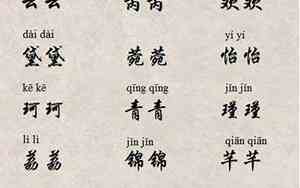 云云 芮芮 欢欢
dài dài yí yí
黛黛 菀菀 怡怡
kē kē qīng qīng jǐn jǐn
珂珂 青青 瑾瑾
lì lì jǐn jǐn qiān qiān
荔荔 锦锦 芊芊